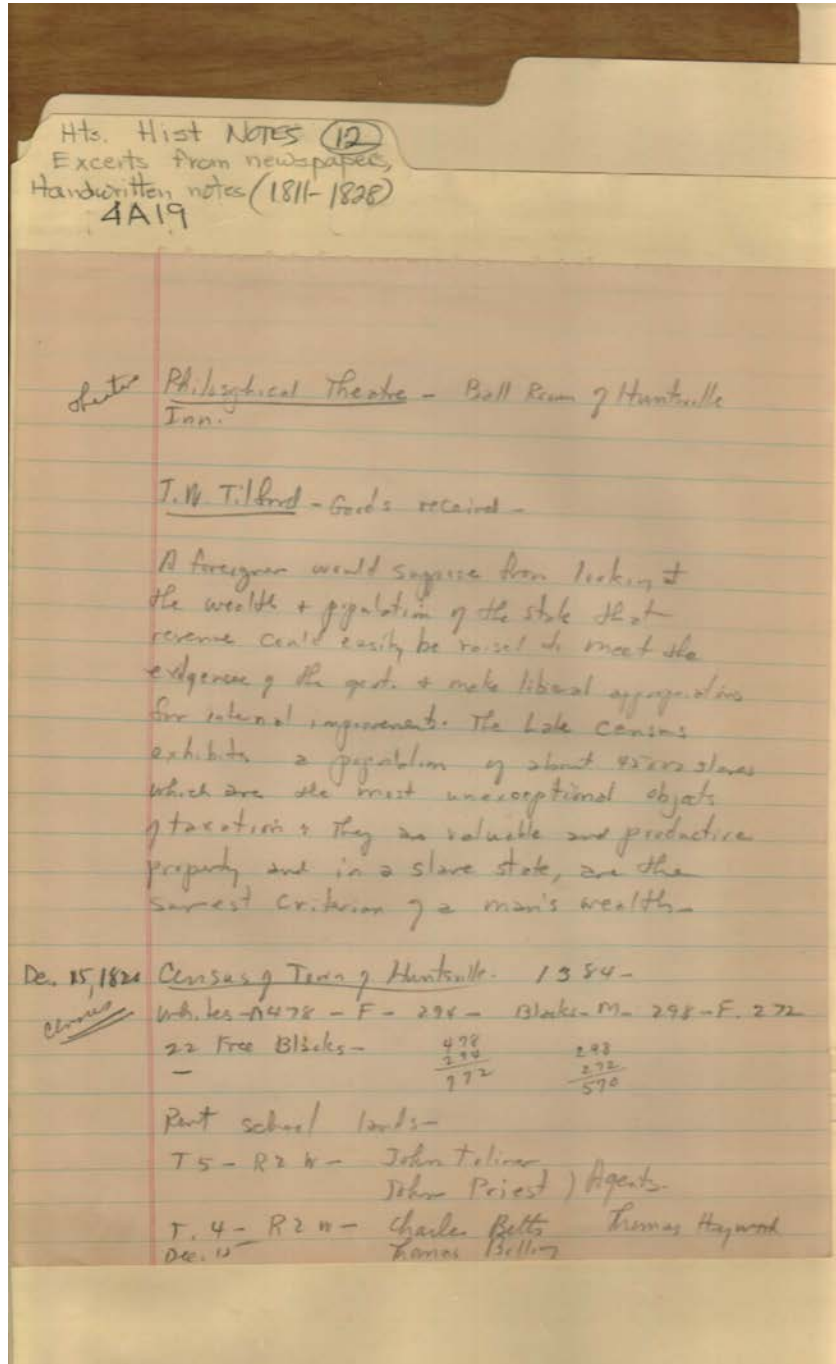 Hts. Hist NOTES (12)
Excerts from newspapers,
Handwritten notes (1811-1828)
4A19
theatre Philosophical Theatre - Ball Room of Huntsville
Inn.
T.W. Tilford - Goods received -
A foreigner would suppose from looking at
the wealth + population of the state that
revenue could easily be raised to meet the
of the govt. + make liberal appropriations
for internal improvements. The late census
exhibits a population of about slaves
which are the most unexceptional objects
of taxation. They are valuable and productive
property and in a slave state, are the
surest criterion of a man's wealth -
De. 15, 1820 Census of Town of Huntsville. 1384 -
census Whites - M 478 - F - 294 - Blacks - M - 298 - F. 272
22 Free Blacks - 478 298
294 272
772 570
Rent school lands -
T 5 - R 2 W - John
John Priest ) Agents -
T. 4 - R 2 W - Charles Betts Thomas Haywood
Dec. Thomas